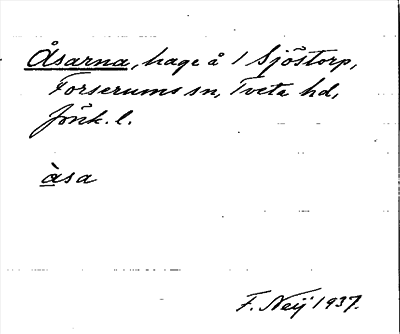 Åsarna, hage å 1 Sjöstorp,
Forserums sn, Tveta hd,
Jönk. l.
àsa
F. Neij 1937.